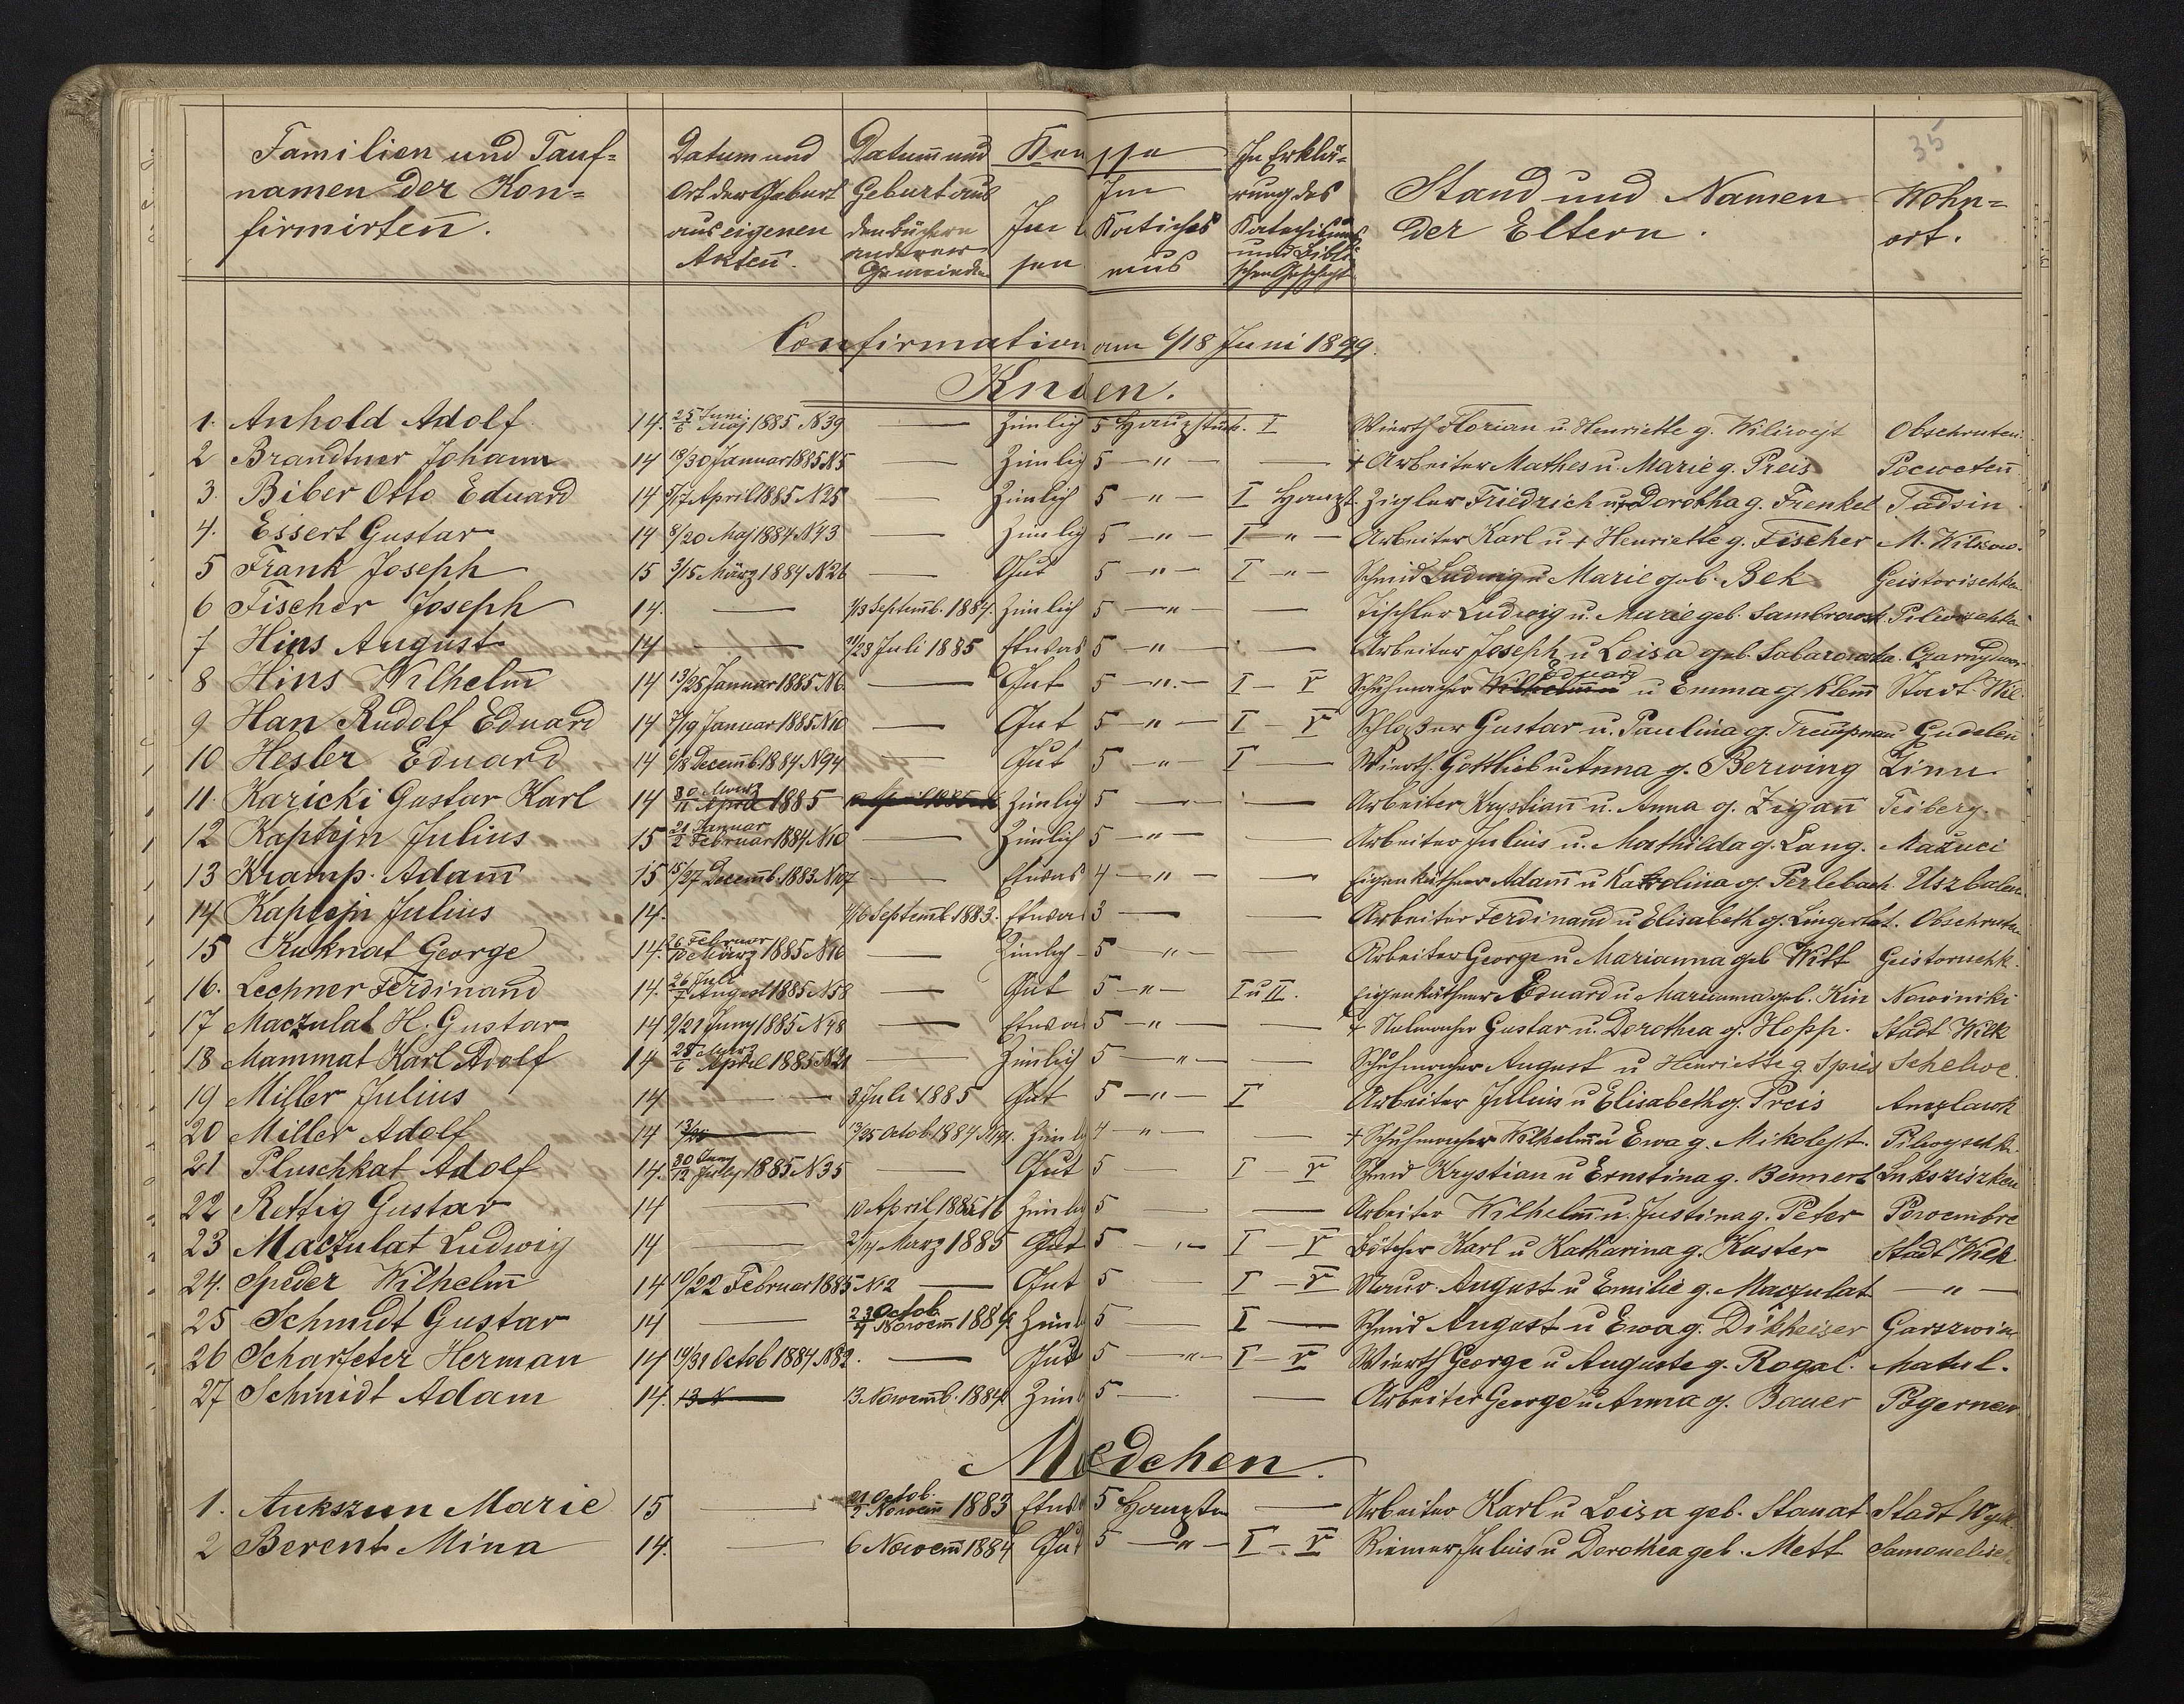 35
Familien und Tauf=
namen der Kon=
firmirten.
Datum und
Ort der Geburt
aus eigenen
Akten.
Datum und
Geburt aus
den Büchern
anderer
Gemeinden
Ken sse
Im Le sen
Im
Katichis
mus
In Erklä=
rung des
Katechismus
und Bibli
schen Geschicht
Stand und Namen
der Eltern.
Wohn=
ort.
Confirmation am 6/18 Juni 1899.
Knaben.
1. Anhold Adolf 14. 25 Juni 6 Maj 1885 N39 — Zimlich 5 Hauptstück. I Wirth Florian u. Henriette g. Obschruten
2 Brandtner Johann 14 18/30 Januar 1885 N5 — Zimlig 5 — " — — + Arbeiter Mathes u. Marie g. Preis Poeweten
3. Biber Otto Eduard 14 5/17 April 1885 N25 — Zimlich 5 " — I Haupt Zigler Friedrich u + Dorothea g. Frenkel Tadsin
4. Essert Gustav 14 8/20 Maj 1884 N43 — Zimlig 5 — " — I — " — Arbeiter Karl u + Henriette g. Fischer M. Wilkow.
5 Frank Joseph 15 3/15 März 1884 N26 — Gut 5 — " — I — " — Schmid Ludwig u Marie geb. Bek Geistorischken
6 Fischer Joseph 14. — 1/13 Septemb. 1884. Zimlich 5 — " — — Tischler Ludwig u. Marie geb. Sambrowsk. Pilwischken
7 Hins August 14 — 11/23 Juli 1885 Etwas 5 — " — — Arbeiter Joseph u Loisa geb. Czarnydwor
8 Hins Wilhelm 14 13/25 Januar 1885 N6 — Gut 5 — " — I – V Schuhmacher Eduard u Emma g. Klemm Stadt Wil.
9 Han Rudolf Eduard 14 7/19 Januar 1885 N10 — Gut 5 — " — I – V Schloßer Gustav u. Paulina g. Treupman Gudelen
10 Hesler Eduard 14 6/18 Decemb. 1884 N94 — Gut 5 — " I — Wirth Gottlieb u Anna g. Berwing Linn
11. Karicki Gustav Karl 14 30 Märtz 11 April 1885 Zimlich 5 — — Arbeiter Krystian u. Anna g. Zigann Teiberg.
12 Kaptejn Julius 15 21 Januar 2 Februar 1884 N10 — Zimlich 5 — " — — Arbeiter Julius u. Mathilda g. Lang. Mauuci
13 Kramp. Adam 15 15/27 Decemb. 1883 N107 — Etwas 4 — " — — Eigenkäthner Adam u Karolina g. Perlebach. Uszbalen
14 Kaptejn Julius 14. 4/16 Septemb. 1883. Etwas 3 — — Arbeiter Ferdinand u Elisabeth g. Obschruten
15 Kuknat George 14. 26 Februar 10 März 1885 N16 — Zimlich – 5 " — — Arbeiter George u Marianna geb Witt Geistorischk.
16. Lechner Ferdinand 14. 26 Juli 7 August 1885 N58 — Gut 5 — " — I u II. Eigenkäthner Eduard u Marianna geb. Kin Nowiniki
17 Maczulat H. Gustav 14 9/21 Juny 1885 N48 — Etwas 5 — " — — + Stelmacher Gustav u. Dorothea g. Hopp. Stadt Wilk
18 Mammat Karl Adolf 14 25 Märtz 6 April 1885 N21 — Zimlich 5 — " — — Schuhmacher August u Henriette g Spies Schelwe.
19 Miller Julius 14 — 3 Juli 1885 Gut 5 — " — I Arbeiter Julius u Elisabeth g. Preis Antzlawk
20 Miller Adolf 14 13/25 13/25 Octob. 1884 Zimlg 4 — " — — + Schuhmacher Wilhelm u Ewa g. Mikolejt. Pilwyschk.
21 Pluschkat Adolf 14. 30 Juny 12 July 1885 N35 — Gut 5 — I – V Schmid Krystian u Ernstina g. Bennert Luksziszken
22 Rettig Gustav 14 — 10 April 1885 Zimli 5 — — Arbeiter Wilhelm u. Justina g. Peter Powembre
23 Maczulat Ludwig 14 — 2/14 März 1885 Gut 5 " — I – V Bötcher Karl u Katharina g. Kuster Stadt Wilk
24. Speder Wilhelm 14 10/22 Februar 1885 N2 — Gut 5 — I – V August u Emilie g. Maczulat — " —
25 Schmidt Gustav 14 — 23 Octob. 4 Nowem 1884 Ziml 5 — I — Schmid August u Ewa g. Dikheiser Garszwin
26 Scharfeter Herman 14 19/31 Octob 1884 N82. — Gut 5 — " — I – V Wirth George u Auguste g. Rogal. Matul.
27 Schmidt Adam 14. 13 N 13 Nowemb. 1884 Ziml 5 — — Arbeiter George u Anna g. Bauer Pogernew
Medchen.
1. Aukszun Marie 15 — 21 Octob. 2 Nowem 1883 Etwa 5 Hauptstu — Arbeiter Karl u Loisa geb. Stanat Stadt Wylk
2 Berent Mina 14. — 6 Nowem 1884 Gut 5 — " — I – V Riemer Julius u Dorothea geb. Mett Samonelisch